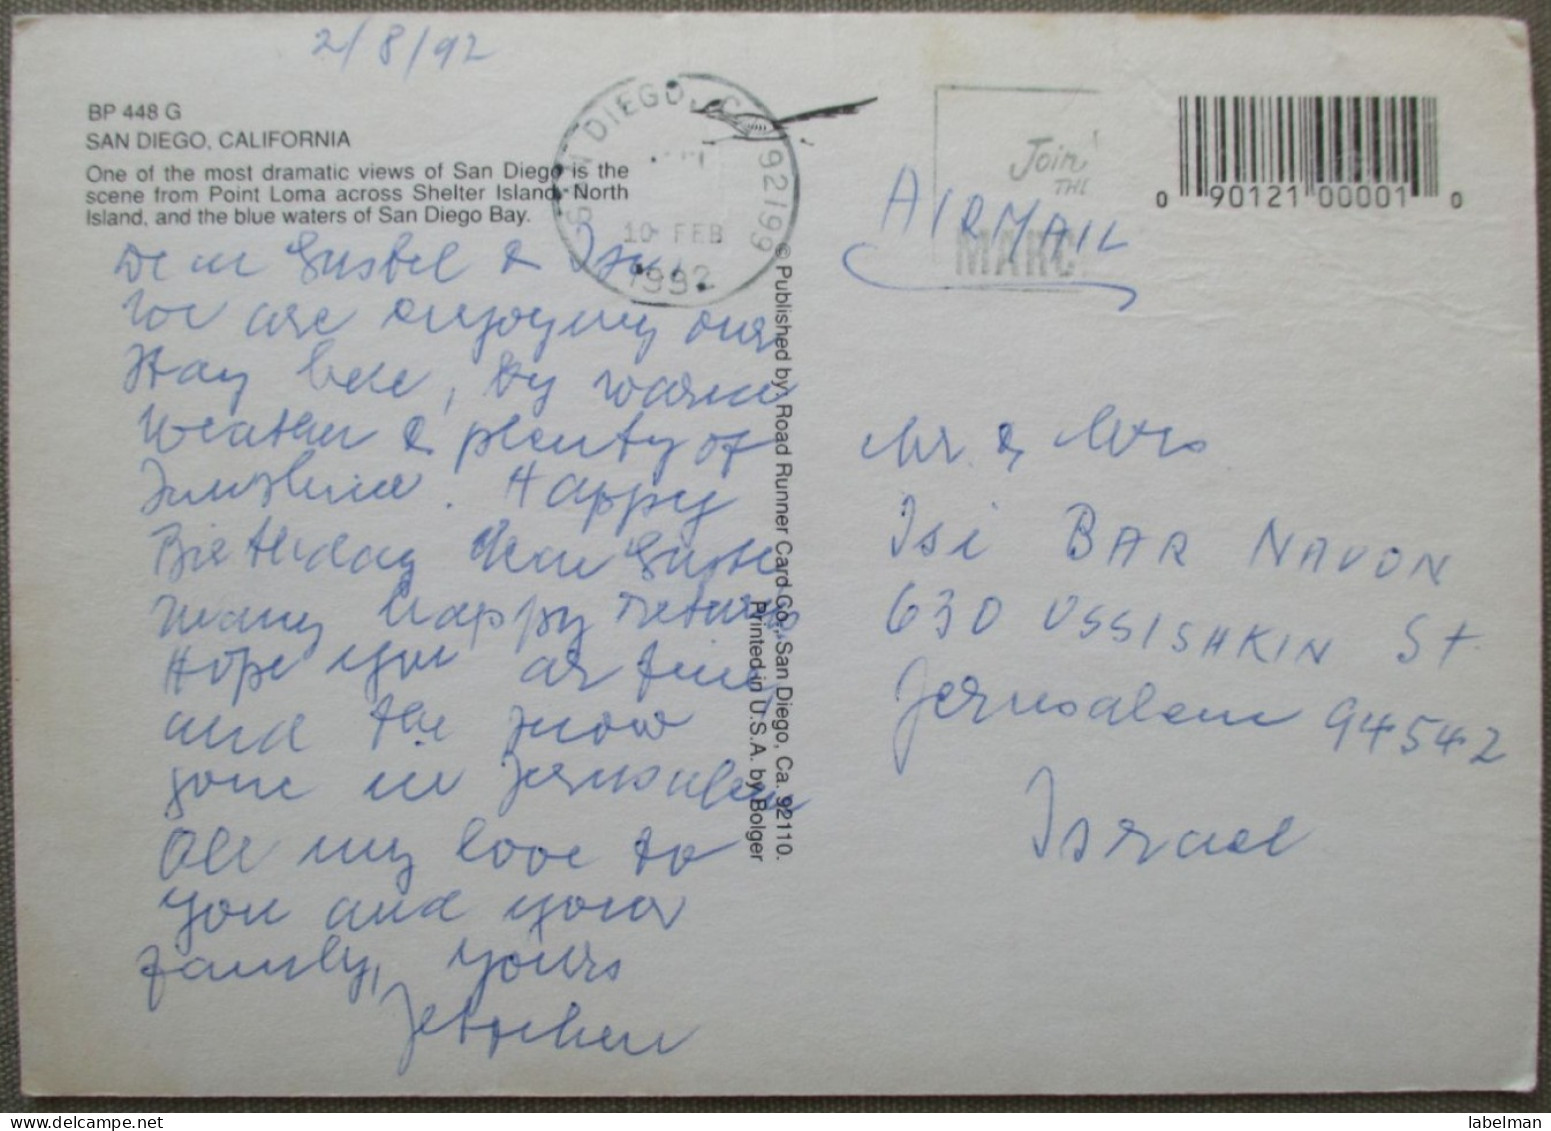 2/8/92
BP 448 G
SAN DIEGO, CALIFORNIA
One of the most dramatic views of San Diego is the
scene from Point Loma across Shelter Island, North
Island, and the blue waters of San Diego Bay.
SAN DIEGO, CA 92199
10 FEB
1992
Join
THE
MARC
0 90121 00001 0
AIRMAIL
Dear & Isi,
We are enjoying our
Stay here, by warm
Weather & plenty of
Sunshine. Happy
Birthday dear
many happy returns
Hope you are fine,
and the snow
gone in Jerusalem
All my love to
you and your
family, yours
© Published by: Road Runner Card Co., San Diego, Ca. 92110.
Printed in U.S.A. by Bolger
Mr. & Mrs
Isi BAR NAVON
630 USSISHKIN St.
Jerusalem 94542
Israel
labelman